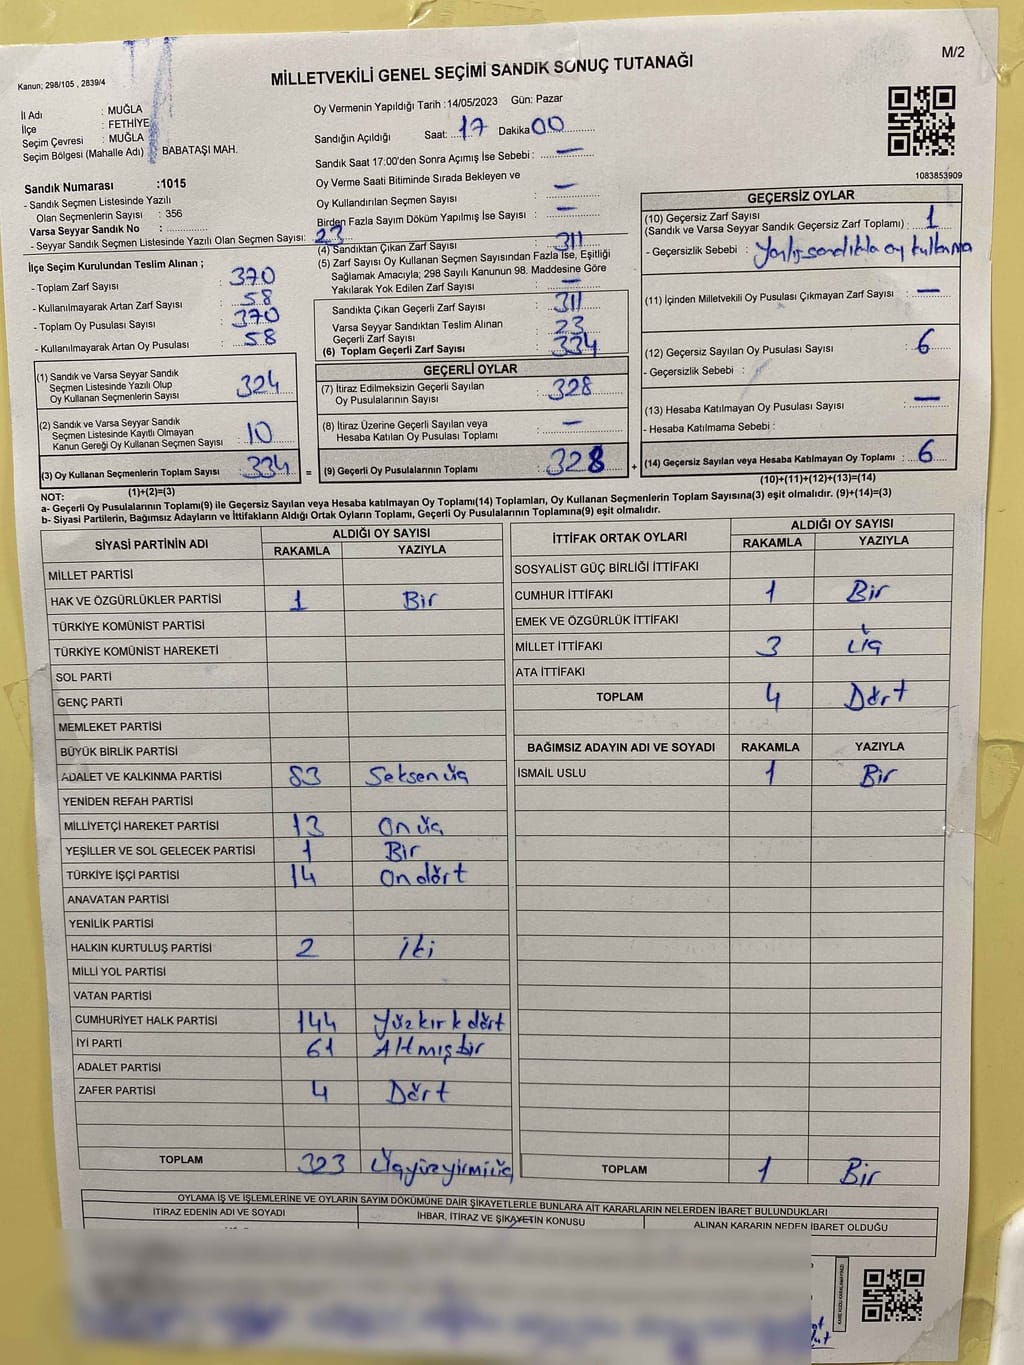 M/2
Kanun; 298/105 , 2839/4
MİLLETVEKİLİ GENEL SEÇİMİ SANDIK SONUÇ TUTANAĞI
İl Adı : MUĞLA
İlçe : FETHİYE
Seçim Çevresi : MUĞLA
Seçim Bölgesi (Mahalle Adı) : BABATAŞI MAH.
Sandık Numarası :1015
- Sandık Seçmen Listesinde Yazılı
Olan Seçmenlerin Sayısı : 356
Varsa Seyyar Sandık No :
- Seyyar Sandık Seçmen Listesinde Yazılı Olan Seçmen Sayısı: 23
Oy Vermenin Yapıldığı Tarih :14/05/2023 Gün: Pazar
Sandığın Açıldığı Saat: 17 Dakika 00
Sandık Saat 17:00'den Sonra Açımış İse Sebebi : —
Oy Verme Saati Bitiminde Sırada Bekleyen ve
Oy Kullandırılan Seçmen Sayısı : —
Birden Fazla Sayım Döküm Yapılmış İse Sayısı : —
1083853909
İlçe Seçim Kurulundan Teslim Alınan ;
- Toplam Zarf Sayısı : 370
- Kullanılmayarak Artan Zarf Sayısı : 58
- Toplam Oy Pusulası Sayısı : 370
- Kullanılmayarak Artan Oy Pusulası : 58
(1) Sandık ve Varsa Seyyar Sandık
Seçmen Listesinde Yazılı Olup
Oy Kullanan Seçmenlerin Sayısı : 324
(2) Sandık ve Varsa Seyyar Sandık
Seçmen Listesinde Kayıtlı Olmayan
Kanun Gereği Oy Kullanan Seçmen Sayısı : 10
(3) Oy Kullanan Seçmenlerin Toplam Sayısı : 334 =
(1)+(2)=(3)
(4) Sandıktan Çıkan Zarf Sayısı : 311
(5) Zarf Sayısı Oy Kullanan Seçmen Sayısından Fazla İse, Eşitliği
Sağlamak Amacıyla; 298 Sayılı Kanunun 98. Maddesine Göre
Yakılarak Yok Edilen Zarf Sayısı : —
Sandıkta Çıkan Geçerli Zarf Sayısı : 311
Varsa Seyyar Sandıktan Teslim Alınan
Geçerli Zarf Sayısı : 23
(6) Toplam Geçerli Zarf Sayısı : 334
GEÇERLİ OYLAR
(7) İtiraz Edilmeksizin Geçerli Sayılan
Oy Pusulalarının Sayısı : 328
(8) İtiraz Üzerine Geçerli Sayılan veya
Hesaba Katılan Oy Pusulası Toplamı : —
(9) Geçerli Oy Pusulalarının Toplamı : 328 +
GEÇERSİZ OYLAR
(10) Geçersiz Zarf Sayısı
(Sandık ve Varsa Seyyar Sandık Geçersiz Zarf Toplamı) : 1
- Geçersizlik Sebebi : Yanlış sandıkta oy kullanma
(11) İçinden Milletvekili Oy Pusulası Çıkmayan Zarf Sayısı : —
(12) Geçersiz Sayılan Oy Pusulası Sayısı : 6
- Geçersizlik Sebebi :
(13) Hesaba Katılmayan Oy Pusulası Sayısı : —
- Hesaba Katılmama Sebebi :
(14) Geçersiz Sayılan veya Hesaba Katılmayan Oy Toplamı : 6
(10)+(11)+(12)+(13)=(14)
NOT:
a- Geçerli Oy Pusulalarının Toplamı(9) ile Geçersiz Sayılan veya Hesaba katılmayan Oy Toplamı(14) Toplamları, Oy Kullanan Seçmenlerin Toplam Sayısına(3) eşit olmalıdır. (9)+(14)=(3)
b- Siyasi Partilerin, Bağımsız Adayların ve İttifakların Aldığı Ortak Oyların Toplamı, Geçerli Oy Pusulalarının Toplamına(9) eşit olmalıdır.
SİYASİ PARTİNİN ADI ALDIĞI OY SAYISI
RAKAMLA YAZIYLA
MİLLET PARTİSİ
HAK VE ÖZGÜRLÜKLER PARTİSİ 1 Bir
TÜRKİYE KOMÜNİST PARTİSİ
TÜRKİYE KOMÜNİST HAREKETİ
SOL PARTİ
GENÇ PARTİ
MEMLEKET PARTİSİ
BÜYÜK BİRLİK PARTİSİ
ADALET VE KALKINMA PARTİSİ 83 Seksen üç
YENİDEN REFAH PARTİSİ
MİLLİYETÇİ HAREKET PARTİSİ 13 On üç
YEŞİLLER VE SOL GELECEK PARTİSİ 1 Bir
TÜRKİYE İŞÇİ PARTİSİ 14 On dört
ANAVATAN PARTİSİ
YENİLİK PARTİSİ
HALKIN KURTULUŞ PARTİSİ 2 İki
MİLLİ YOL PARTİSİ
VATAN PARTİSİ
CUMHURİYET HALK PARTİSİ 144 Yüz kırk dört
İYİ PARTİ 61 Altmışbir
ADALET PARTİSİ
ZAFER PARTİSİ 4 Dört
TOPLAM 323 Üçyüzyirmiüç
İTTİFAK ORTAK OYLARI ALDIĞI OY SAYISI
RAKAMLA YAZIYLA
SOSYALİST GÜÇ BİRLİĞİ İTTİFAKI
CUMHUR İTTİFAKI 1 Bir
EMEK VE ÖZGÜRLÜK İTTİFAKI
MİLLET İTTİFAKI 3 Üç
ATA İTTİFAKI
TOPLAM 4 Dört
BAĞIMSIZ ADAYIN ADI VE SOYADI RAKAMLA YAZIYLA
İSMAİL USLU 1 Bir
TOPLAM 1 Bir
OYLAMA İŞ VE İŞLEMLERİNE VE OYLARIN SAYIM DÖKÜMÜNE DAİR ŞİKAYETLERLE BUNLARA AİT KARARLARIN NELERDEN İBARET BULUNDUKLARI
İTİRAZ EDENİN ADI VE SOYADI İHBAR, İTİRAZ VE ŞİKAYETİN KONUSU ALINAN KARARIN NEDEN İBARET OLDUĞU